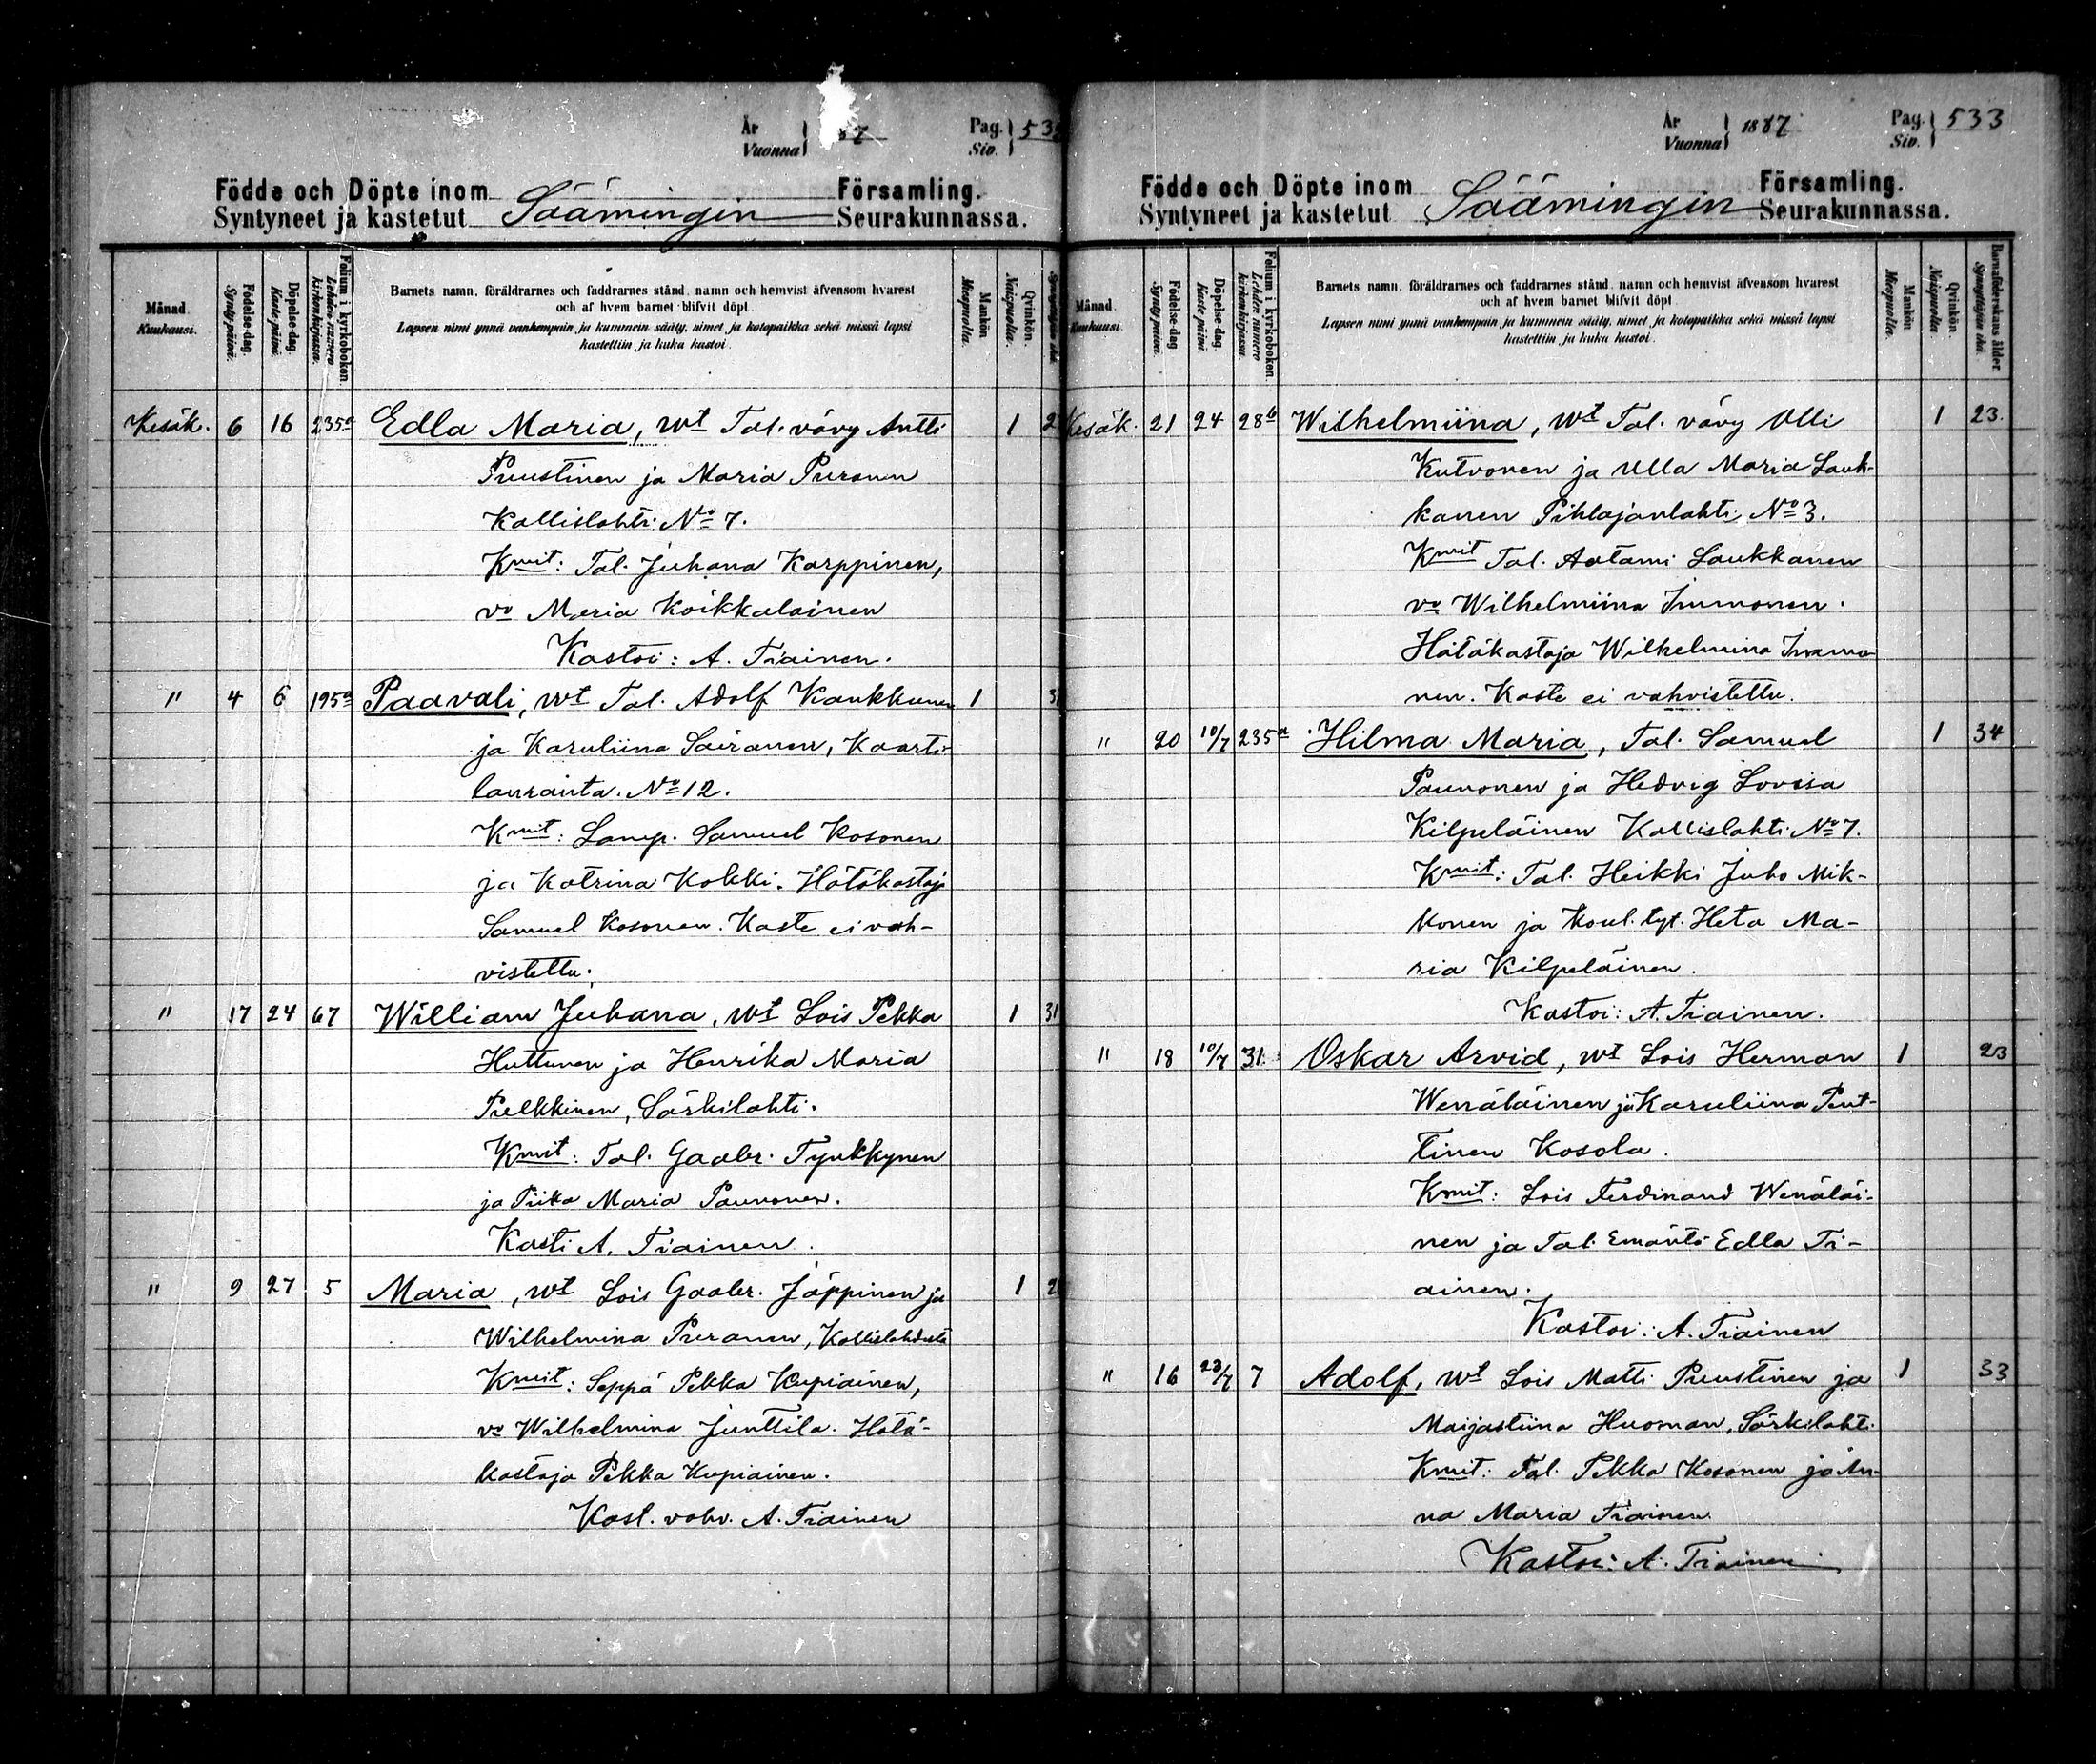 År
Vuonna 7
Pag.
Siv. 53
Födde och Döpte inom Församling.
Syntyneet ja kastetut Säämingin Seurakunnassa.
Månad. Kuukausi.
Födelse-dag. Synty päivä.
Döpelse-dag. Kaste päivä.
Folium i kyrkoboken. Lehden numero kirkonkirjassa.
Barnets namn, föräldrarnes och faddrarnes stånd, namn och hemvist äfvensom hvarest
och af hvem barnet blifvit döpt.
Lapsen nimi ynnä vanhempain ja kummein sääty, nimet ja kotopaikka sekä missä lapsi
kastettiin ja kuka kastoi.
Mankön Miespuolta.
Qvinkön. Naispuolta.
Kesäk. 6 16 235a Edla Maria, wt Tal. vävy Antti 1 2
Puustinen ja Maria Puranen
Kallislahti No 7.
Kmit: Tal. Juhana Karppinen,
vo Maria Koikkalainen
Kastoi: A. Tiainen.
" 4 6 195a Paavali, wt Tal. Adolf Kaukkunen 1 3
ja Karuliina Sairanen, Kaarti-
lanranta. No 12.
Kmit: Lamp. Samuel Kosonen
ja Katrina Kokki. Hätäkastaja
Samuel Kosonen. Kaste ei vah-
vistettu.
" 17 24 67 William Juhana, wt Lois Pekka 1 31
Huttunen ja Henrika Maria
Pulkkinen, Särkilahti.
Kmit: Tal. Gaabr. Tynkkynen
ja Piika Maria Paunonen.
Kasti A. Tiainen.
" 9 27 5 Maria, wt Lois Gaabr. Jäppinen ja 1 2
Wilhelmina Puranen, Kallislahdesta
Kmit: Seppä Pekka Kupiainen,
vo Wilhelmina Junttila. Hätä-
kastaja Pekka Kupiainen.
Kast. vahv. A. Tiainen
År
Vuonna 1887
Pag.
Siv. 533
Födde och Döpte inom Församling.
Syntyneet ja kastetut Säämingin Seurakunnassa.
Månad. Kuukausi.
Födelse-dag. Synty päivä.
Döpelse-dag. Kaste päivä
Folium i kyrkoboken. Lehden numero kirkonkirjassa.
Barnets namn, föräldrarnes och faddrarnes stånd, namn och hemvist äfvensom hvarest
och af hvem barnet blifvit döpt.
Lapsen nimi ynnä vanhempain ja kummein sääty, nimet ja kotopaikka sekä missä lapsi
kastettiin ja kuka kastoi.
Mankön Miespuolta.
Qvinkön. Naispuolta
Barnaföderskans ålder. Synnyttäjän ikä.
Kesäk. 21 24 28b Wilhelmiina, wt Tal. vävy Olli 1 23.
Kutvonen ja Ulla Maria Lauk-
kanen Pihlajanlahti No 3.
Kmit Tal. Aatami Laukkanen
vo Wilhelmiina Immonen.
Hätäkastaja Wilhelmina Immo
nen. Kaste ei vahvistettu.
" 20 10/7 235a Hilma Maria, Tal. Samuel 1 34
Paunonen ja Hedvig Lovisa
Kilpeläinen Kallislahti No 7.
Kmit: Tal. Heikki Juho Mik-
konen ja Koul. tyt. Heta Ma-
ria Kilpeläinen.
Kastoi: A. Tiainen.
" 18 10/7 31 Oskar Arvid, wt Lois Herman 1 23
Wenäläinen ja Karuliina Pent-
tinen Kosola.
Kmit: Lois Ferdinand Wenäläi-
nen ja Tal. Emäntä Edla Ti-
ainen.
Kastoi: A. Tiainen
" 16 23/7 7 Adolf, wt Lois Matti Puustinen ja 1 33
Maijastiina Huoman, Särkilahti
Kmit: Tal. Pekka Kosonen ja An-
na Maria Tiainen
Kastoi: A. Tiainen